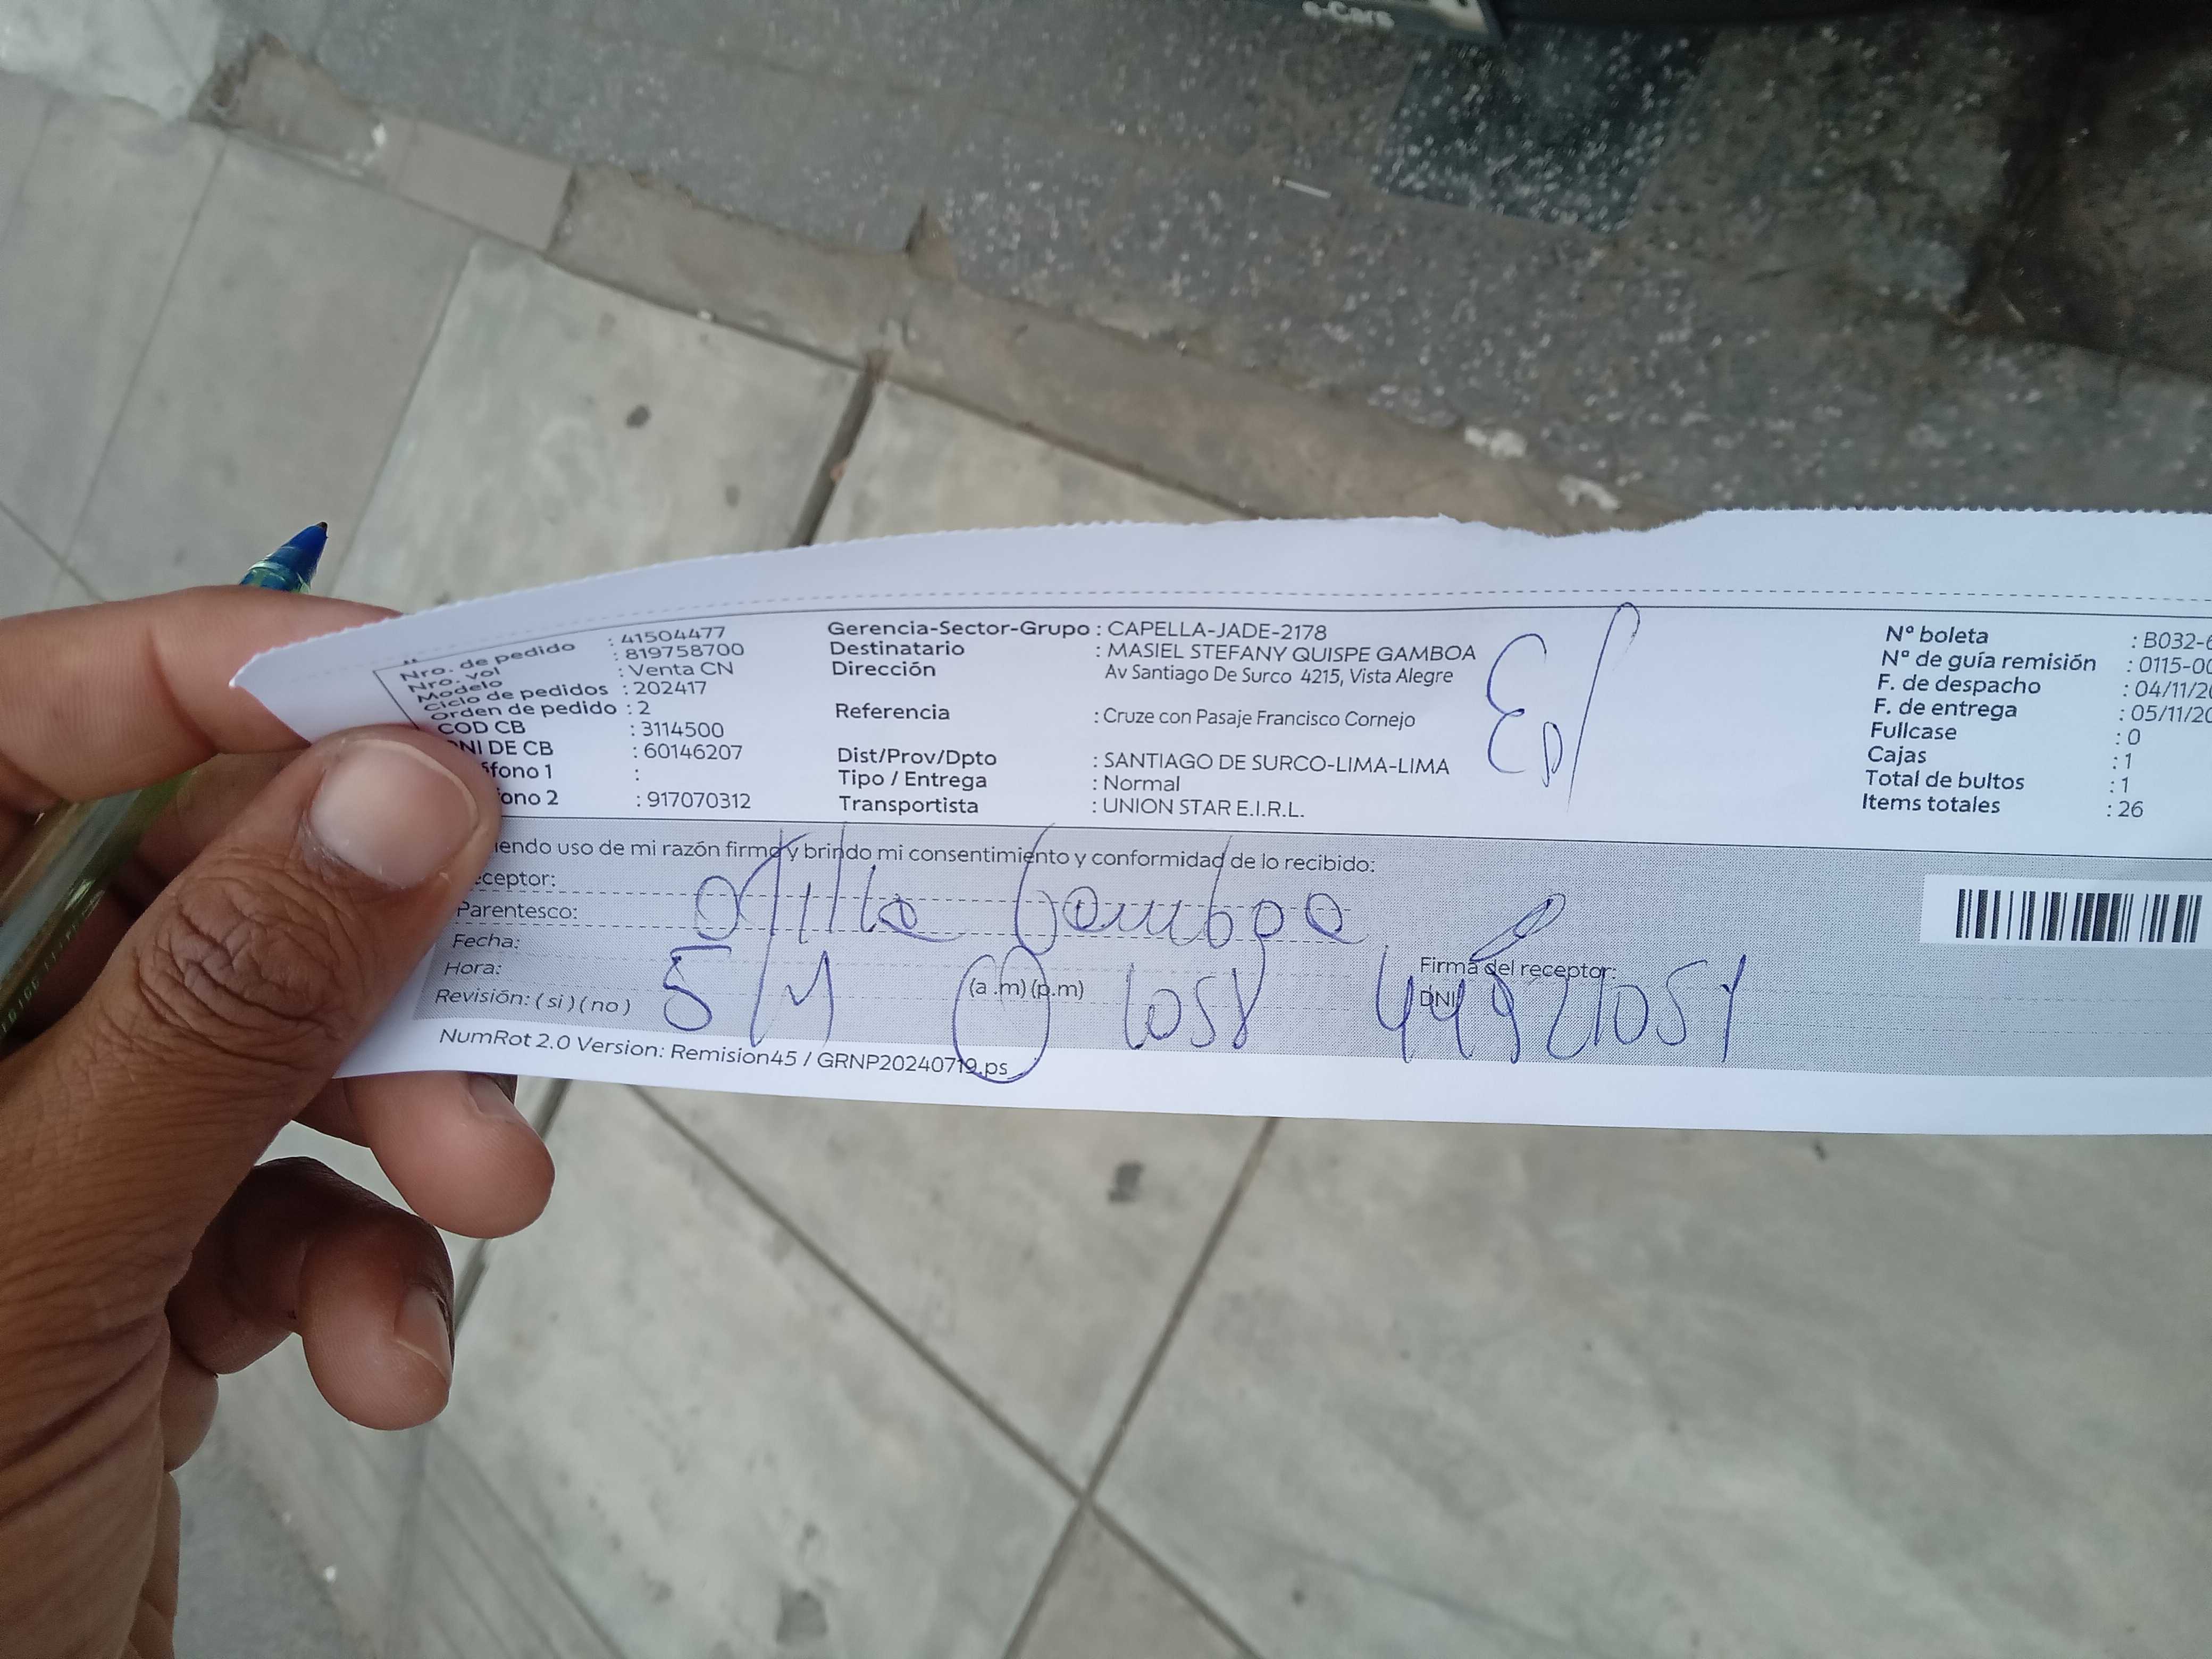 e-Cars
Nro. de pedido : 41504477
Nro. vol : 819758700
Modelo : Venta CN
Ciclo de pedidos : 202417
Orden de pedido : 2
COD CB : 3114500
NI DE CB : 60146207
fono 1 :
ono 2 : 917070312
Gerencia-Sector-Grupo : CAPELLA-JADE-2178
Destinatario : MASIEL STEFANY QUISPE GAMBOA
Dirección Av Santiago De Surco 4215, Vista Alegre
Referencia : Cruze con Pasaje Francisco Cornejo
Dist/Prov/Dpto : SANTIAGO DE SURCO-LIMA-LIMA
Tipo / Entrega : Normal
Transportista : UNION STAR E.I.R.L.
N° boleta : B032-6
N° de guía remisión : 0115-00
F. de despacho : 04/11/20
F. de entrega : 05/11/20
Fullcase : 0
Cajas : 1
Total de bultos : 1
Items totales : 26
iendo uso de mi razón firmo y brindo mi consentimiento y conformidad de lo recibido:
ceptor:
Parentesco: Gamboa
Fecha:
Hora: (a .m) (p.m) Firma del receptor:
Revisión: ( si ) ( no ) 5/11 DNI
NumRot 2.0 Version: Remision45 / GRNP20240719.ps